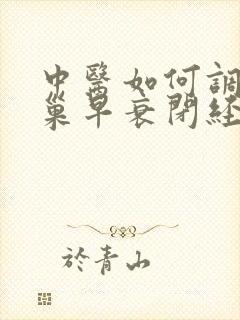 中醫如何調
巢早衰閉經
於青山